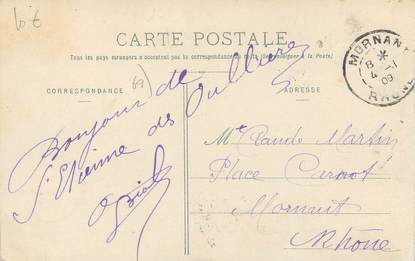 10 €
CARTE POSTALE
Tous les pays étrangers n'acceptent pas la correspondance au recto (Se renseigner à la Poste)
MORNANT
8 *
4 -1
09
RHÔNE
CORRESPONDANCE
69
ADRESSE
Bonjour de
St Etienne des Oullières
Me Claude Martin
Place Carnot
Mornant
Rhône